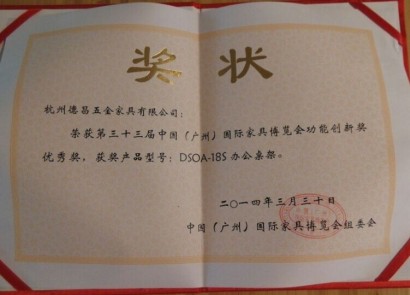 奖状
杭州德昌五金家具有限公司：
荣获第三十三届中国（广州）国际家具博览会功能创新奖
优秀奖，获奖产品型号：DSOA-18S 办公桌架。
二〇一四年三月三十日
中国（广州）国际家具博览会组委会